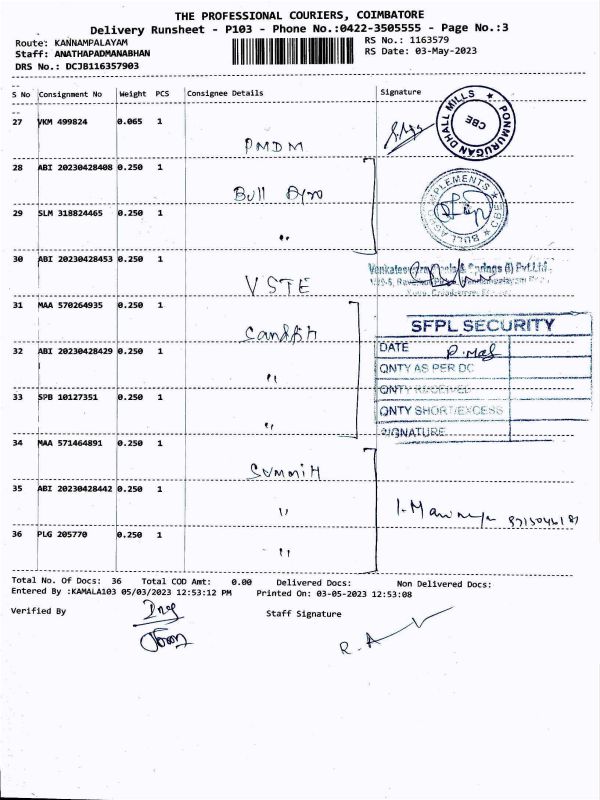 THE PROFESSIONAL COURIERS, COIMBATORE
Delivery Runsheet - P103 - Phone No.:0422-3505555 - Page No.:3
Route: KANNAMPALAYAM RS No.: 1163579
Staff: ANATHAPADMANABHAN RS Date: 03-May-2023
DRS No.: DCJB116357903
S No Consignment No Weight PCS Consignee Details Signature
27 VKM 499824 0.065 1 PMDM
PONMURUGAN DHALL MILLS CBE
28 ABI 20230428408 0.250 1 Bull Agro
BULL AGRO IMPLEMENTS CBE
29 SLM 318824465 0.250 1 "
30 ABI 20230428453 0.250 1 VSTE
& Springs (I) Pvt.Ltd.,
31 MAA 570264935 0.250 1
SFPL SECURITY
DATE
32 ABI 20230428429 0.250 1 "
QNTY AS PER DC
QNTY RECEIVED
33 SPB 10127351 0.250 1 "
QNTY SHORT/EXCESS
SIGNATURE
34 MAA 571464891 0.250 1 Summit
35 ABI 20230428442 0.250 1 "
36 PLG 205770 0.250 1 "
Total No. Of Docs: 36 Total COD Amt: 0.00 Delivered Docs: Non Delivered Docs:
Entered By :KAMALA103 05/03/2023 12:53:12 PM Printed On: 03-05-2023 12:53:08
Verified By Staff Signature
R. A